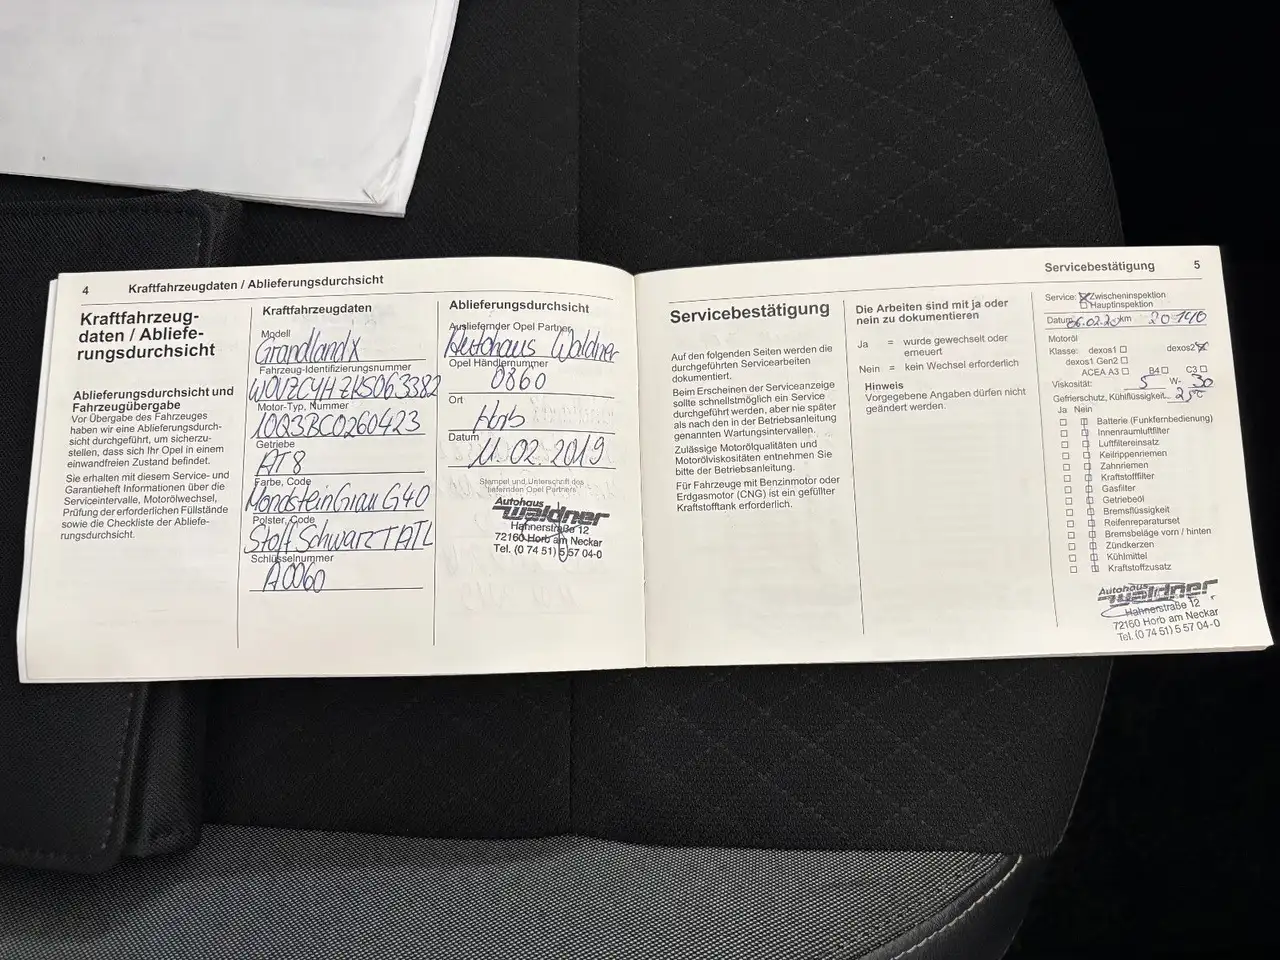 4 Kraftfahrzeugdaten / Ablieferungsdurchsicht
Kraftfahrzeug-
daten / Abliefe-
rungsdurchsicht
Ablieferungsdurchsicht und
Fahrzeugübergabe
Vor Übergabe des Fahrzeuges
haben wir eine Ablieferungsdurch-
sicht durchgeführt, um sicherzu-
stellen, dass sich Ihr Opel in einem
einwandfreien Zustand befindet.
Sie erhalten mit diesem Service- und
Garantieheft Informationen über die
Serviceintervalle, Motorölwechsel,
Prüfung der erforderlichen Füllstände
sowie die Checkliste der Abliefe-
rungsdurchsicht.
Kraftfahrzeugdaten
Modell
Grandland X
Fahrzeug-Identifizierungsnummer
W0VZCYHZKS063382
Motor-Typ, Nummer
10Q3BC0260423
Getriebe
AT8
Farbe, Code
MondsteinGrau G40
Polster, Code
Stoff Schwarz TATL
Schlüsselnummer
A0060
Ablieferungsdurchsicht
Ausliefernder Opel Partner
Autohaus Waldner
Opel Händlernummer
0860
Ort
Horb
Datum
11.02.2019
Stempel und Unterschrift des
liefernden Opel Partners
Autohaus
waldner
Hahnerstraße 12
72160 Horb am Neckar
Tel. (0 74 51) 5 57 04-0
Servicebestätigung 5
Servicebestätigung
Auf den folgenden Seiten werden die
durchgeführten Servicearbeiten
dokumentiert.
Beim Erscheinen der Serviceanzeige
sollte schnellstmöglich ein Service
durchgeführt werden, aber nie später
als nach den in der Betriebsanleitung
genannten Wartungsintervallen.
Zulässige Motorölqualitäten und
Motorölviskositäten entnehmen Sie
bitte der Betriebsanleitung.
Für Fahrzeuge mit Benzinmotor oder
Erdgasmotor (CNG) ist ein gefüllter
Kraftstofftank erforderlich.
Die Arbeiten sind mit ja oder
nein zu dokumentieren
Ja = wurde gewechselt oder
erneuert
Nein = kein Wechsel erforderlich
Hinweis
Vorgegebene Angaben dürfen nicht
geändert werden.
Service: Zwischeninspektion
Hauptinspektion
Datum 06.02.20 km 20 140
Motoröl
Klasse: dexos1 dexos2
dexos1 Gen2
ACEA A3 B4 C3
Viskosität: 5 W- 30
Gefrierschutz, Kühlflüssigkeit
Ja Nein
Batterie (Funkfernbedienung)
Innenraumluftfilter
Luftfiltereinsatz
Keilrippenriemen
Zahnriemen
Kraftstofffilter
Gasfilter
Getriebeöl
Bremsflüssigkeit
Reifenreparaturset
Bremsbeläge vorn / hinten
Zündkerzen
Kühlmittel
Kraftstoffzusatz
Autohaus
waldner
Hahnerstraße 12
72160 Horb am Neckar
Tel. (0 74 51) 5 57 04-0